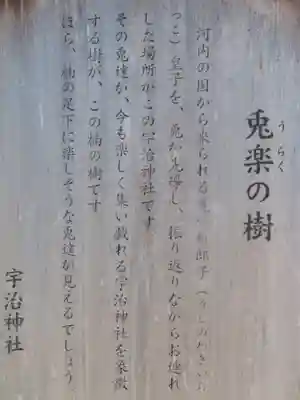 兎楽の樹
うらく
河内の国から来られる菟道稚郎子(うじのわきいら
っこ)皇子を、兎が先導し、振り返りながらお連れ
した場所がこの宇治神社です
その兎達が、今も楽しく集い戯れる宇治神社を象徴
する樹が、この楠の樹です
ほら、楠の足下に楽しそうな兎達が見えるでしょう
宇治神社